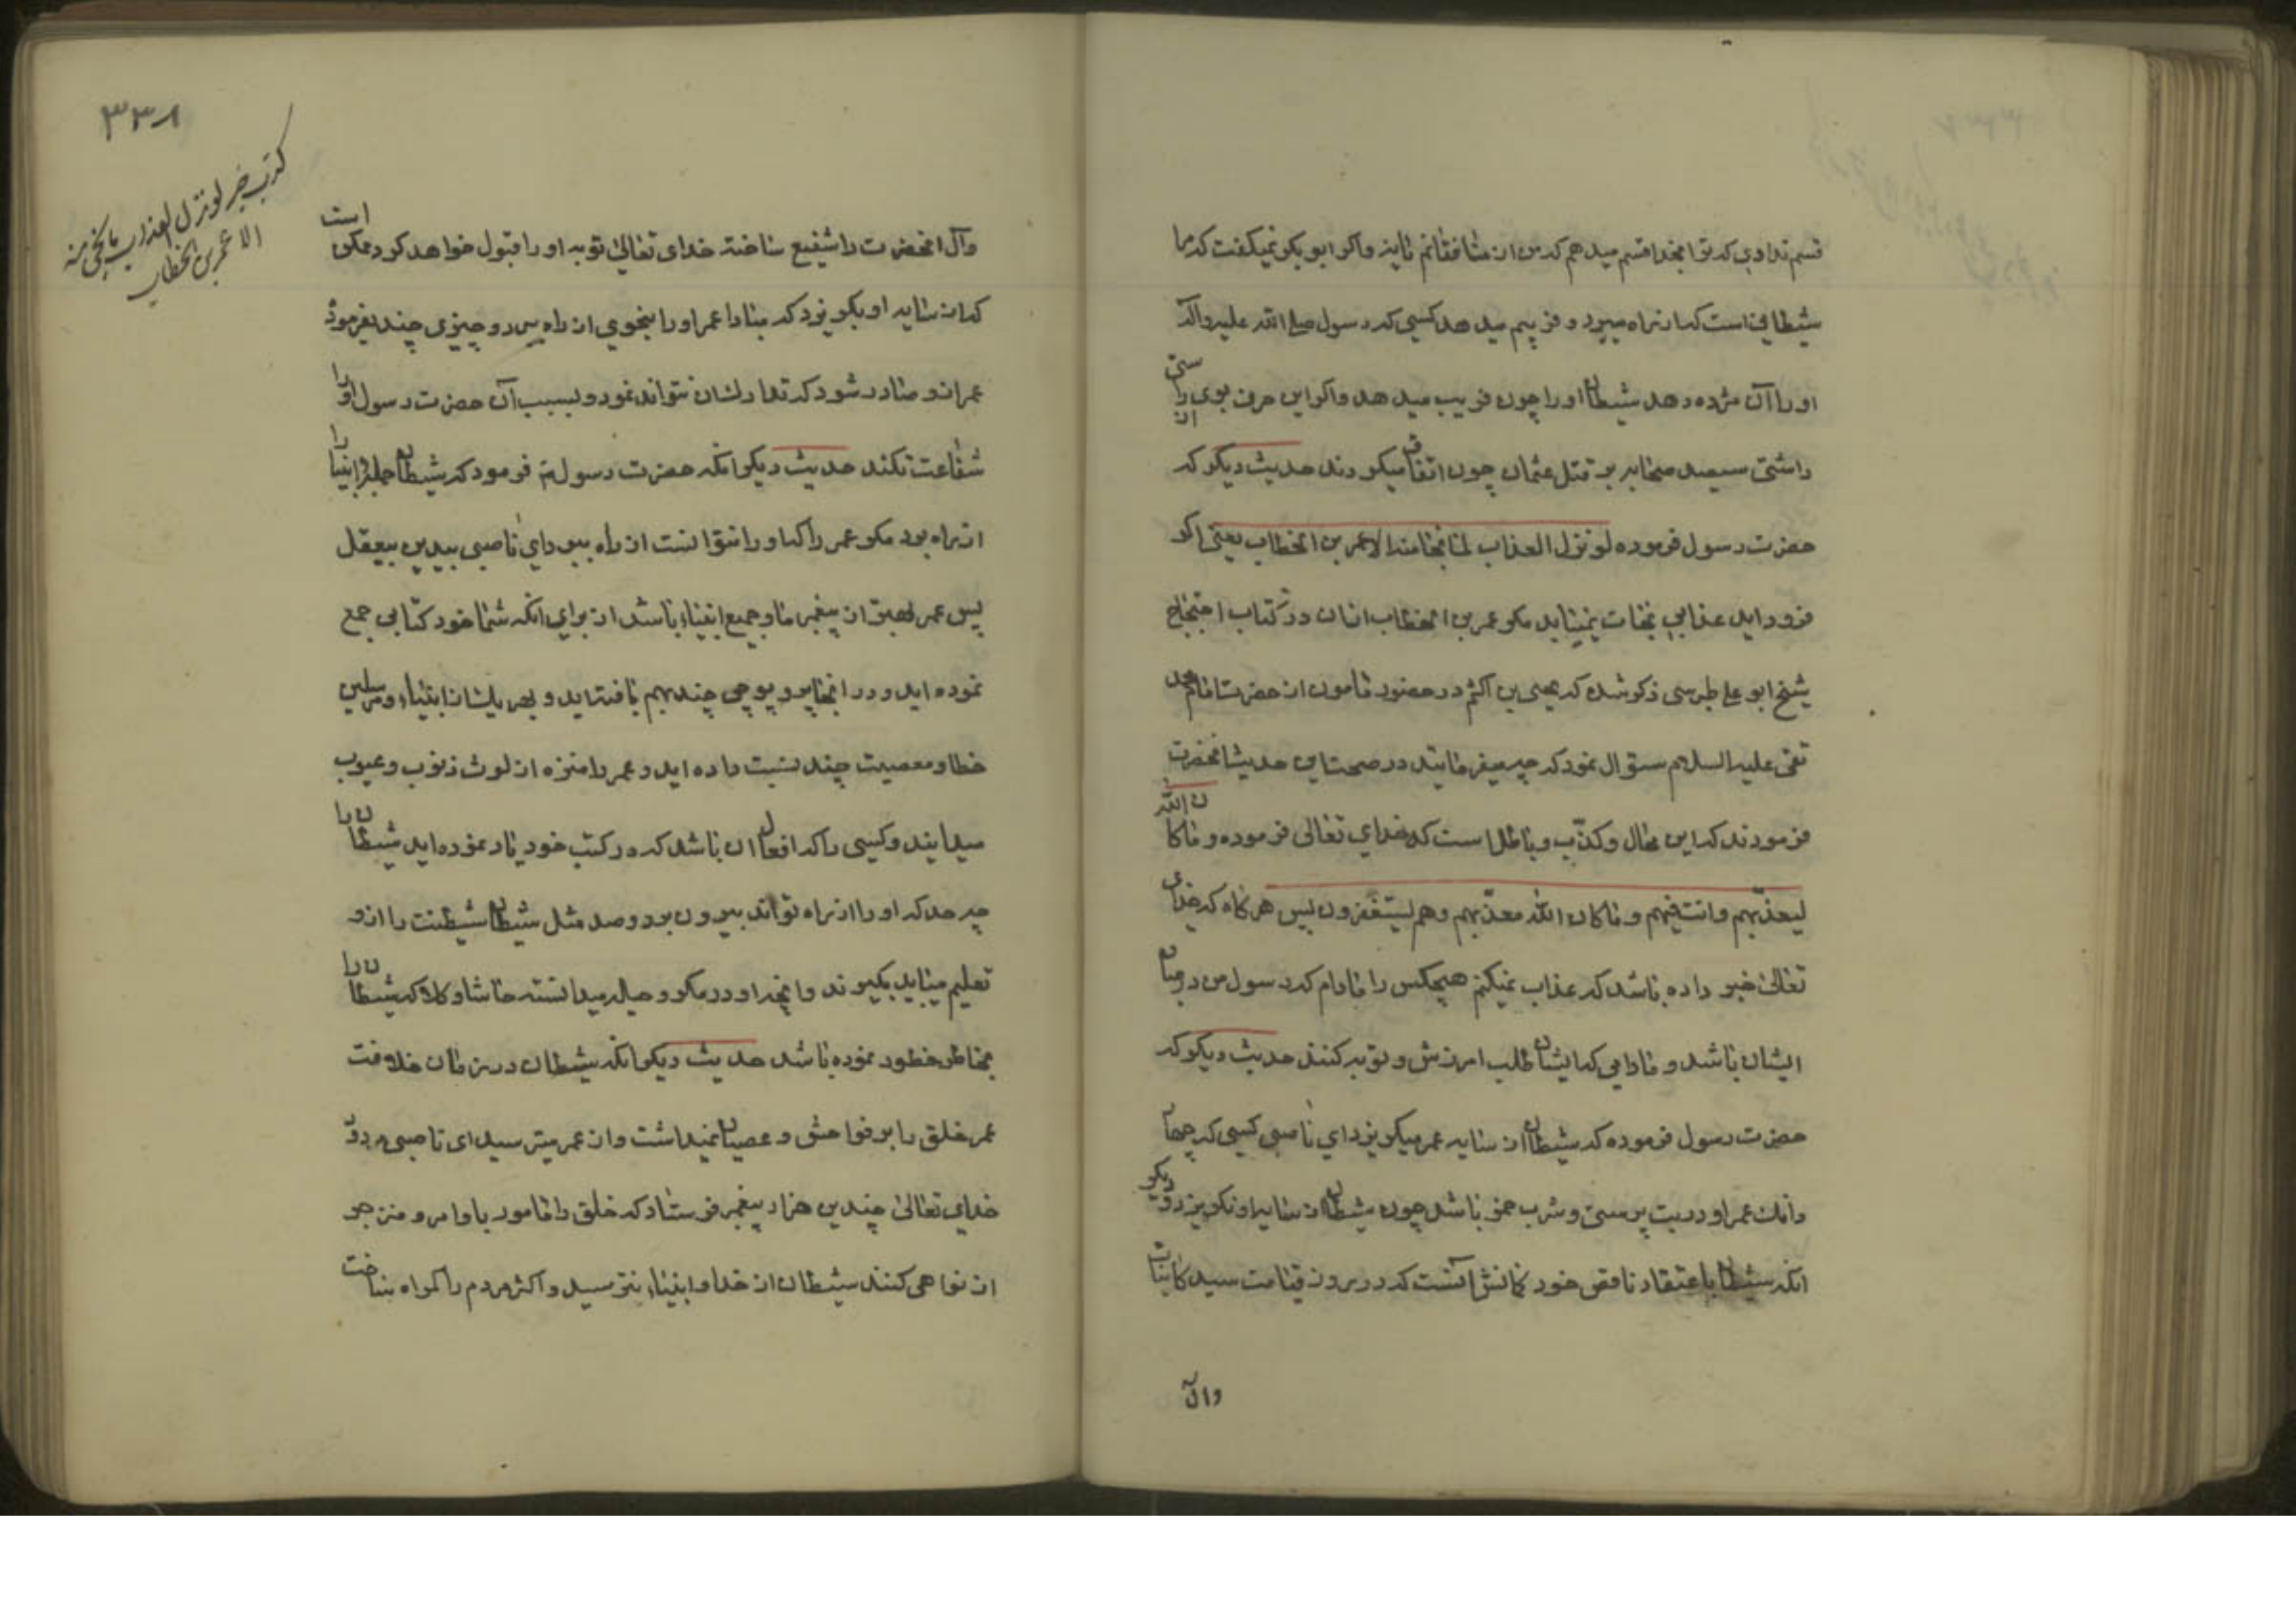 قسم ندادی که ترا بخدا قسم میدهم که من از منافقانم یا نه واکر ابو بکر نمیکفت که مرا
شیطانی است که از راه میبرد و فریبم میدهد کسی که رسول صلی الله علیه واله
او را آن مژده دهد شیطان او را چون فریب میدهد واکر این حرف بوی راستی
داشتی سیصد صحابه بر قتل عثمان چون اتفاق میکردند حدیث دیکر که
حضرت رسول فرموده لو نزل العذاب لما نجا منه الا عمر بن الخطاب یعنی اکر
فرود اید عذابی نجات نمییابد مکر عمر بن الخطاب در کتاب احتجاج
شیخ ابو علی طبرسی ذکر شده که یحیی بن اکثم در حضور مامون از حضرت امام محمد
تقی علیه السلام سؤال نمود که چه میفرمایند در صحت این حدیث انحضرت
فرمودند که این محال وکذب و باطل است که خدای تعالی فرموده و ما کان الله
لیعذبهم وانت فیهم و ما کان الله معذبهم وهم یستغفرون پس هر کاه که خدای
تعالی خبر داده باشد که عذاب نمیکنم هیچکس را مادام که رسول من در میان
ایشان باشد و مادامی که ایشان طلب امرزش و توبه کنند حدیث دیکر که
حضرت رسول فرموده که شیطان از سایه عمر میکریزد ای ناصبی کسی که چهل
عمر او در بت پرستی و شرب خمر باشد چون شیطان از سایه او نکریزد و دیکر
انکه شیطان باعتقاد ناقص خود کمانش انست که در روز قیامت سید کاینات
وال
۳۳۸
کذب خبر لو نزل العذاب ما نجی منه
الا عمر بن الخطاب
وآل انحضرت را شفیع ساخته خدای تعالی توبه او را قبول خواهد کرد ممکن است
که از سایه او بکریزد که مبادا عمر او را بنحوی از راه ببرد و چیزی چند بفرموده
عمر از و صادر شود که تدارک ان نتواند نمود و بسبب آن حضرت رسول او را
شفاعت نکند حدیث دیکر انکه حضرت رسول فرمود که شیطان جمله انبیا را
از راه برد مکر عمر را که او را نتوانست از راه ببرد ای ناصبی بیدین بیعقل
پس عمر بهتر از پیغمبر ما و جمیع انبیا باشد از برای انکه شما خود کتابی جمع
نموده اید و در انجا پوچی چند بهم بافته اید و بهر یک از انبیاء و مرسلین
خطا و معصیت چند نسبت داده اید و عمر را منزه از لوث ذنوب و عیوب
میدانید وکسی را که افعال ان باشد که در کتب خود یاد نموده اید شیطان را
چه حد که او را از راه تواند بیرون برد و صد مثل شیطان شیطنت را از و
تعلیم میباید بکیرند وانچه او در مکر و حیله میدانسته حاشا و کلا که شیطان را
بخاطر خطور نموده باشد حدیث دیکر انکه شیطان در زمان خلافت
عمر خلق را بر فواحش و عصیان نمیداشت و از عمر میترسید ای ناصبی مردود
خدای تعالی چندین هزار پیغمبر فرستاد که خلق را مامور باوامر و منزجر
از نواهی کنند شیطان از خدا و انبیاء نترسید و اکثر مردم را کمراه ساخت